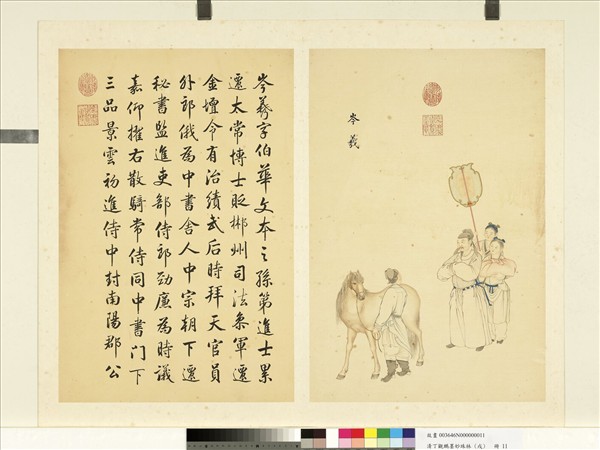 岑羲
岑羲字伯華文本之孫第進士累
遷太常博士貶郴州司法參軍遷
金壇令有治績武后時拜天官員
外郎俄為中書舍人中宗朝下遷
秘書監進吏部侍郎勁廉為時議
嘉仰擢右散騎常侍同中書門下
三品景雲初進侍中封南陽郡公
故畫 003646N000000011
清丁觀鵬墨妙珠林（戌） 冊 11